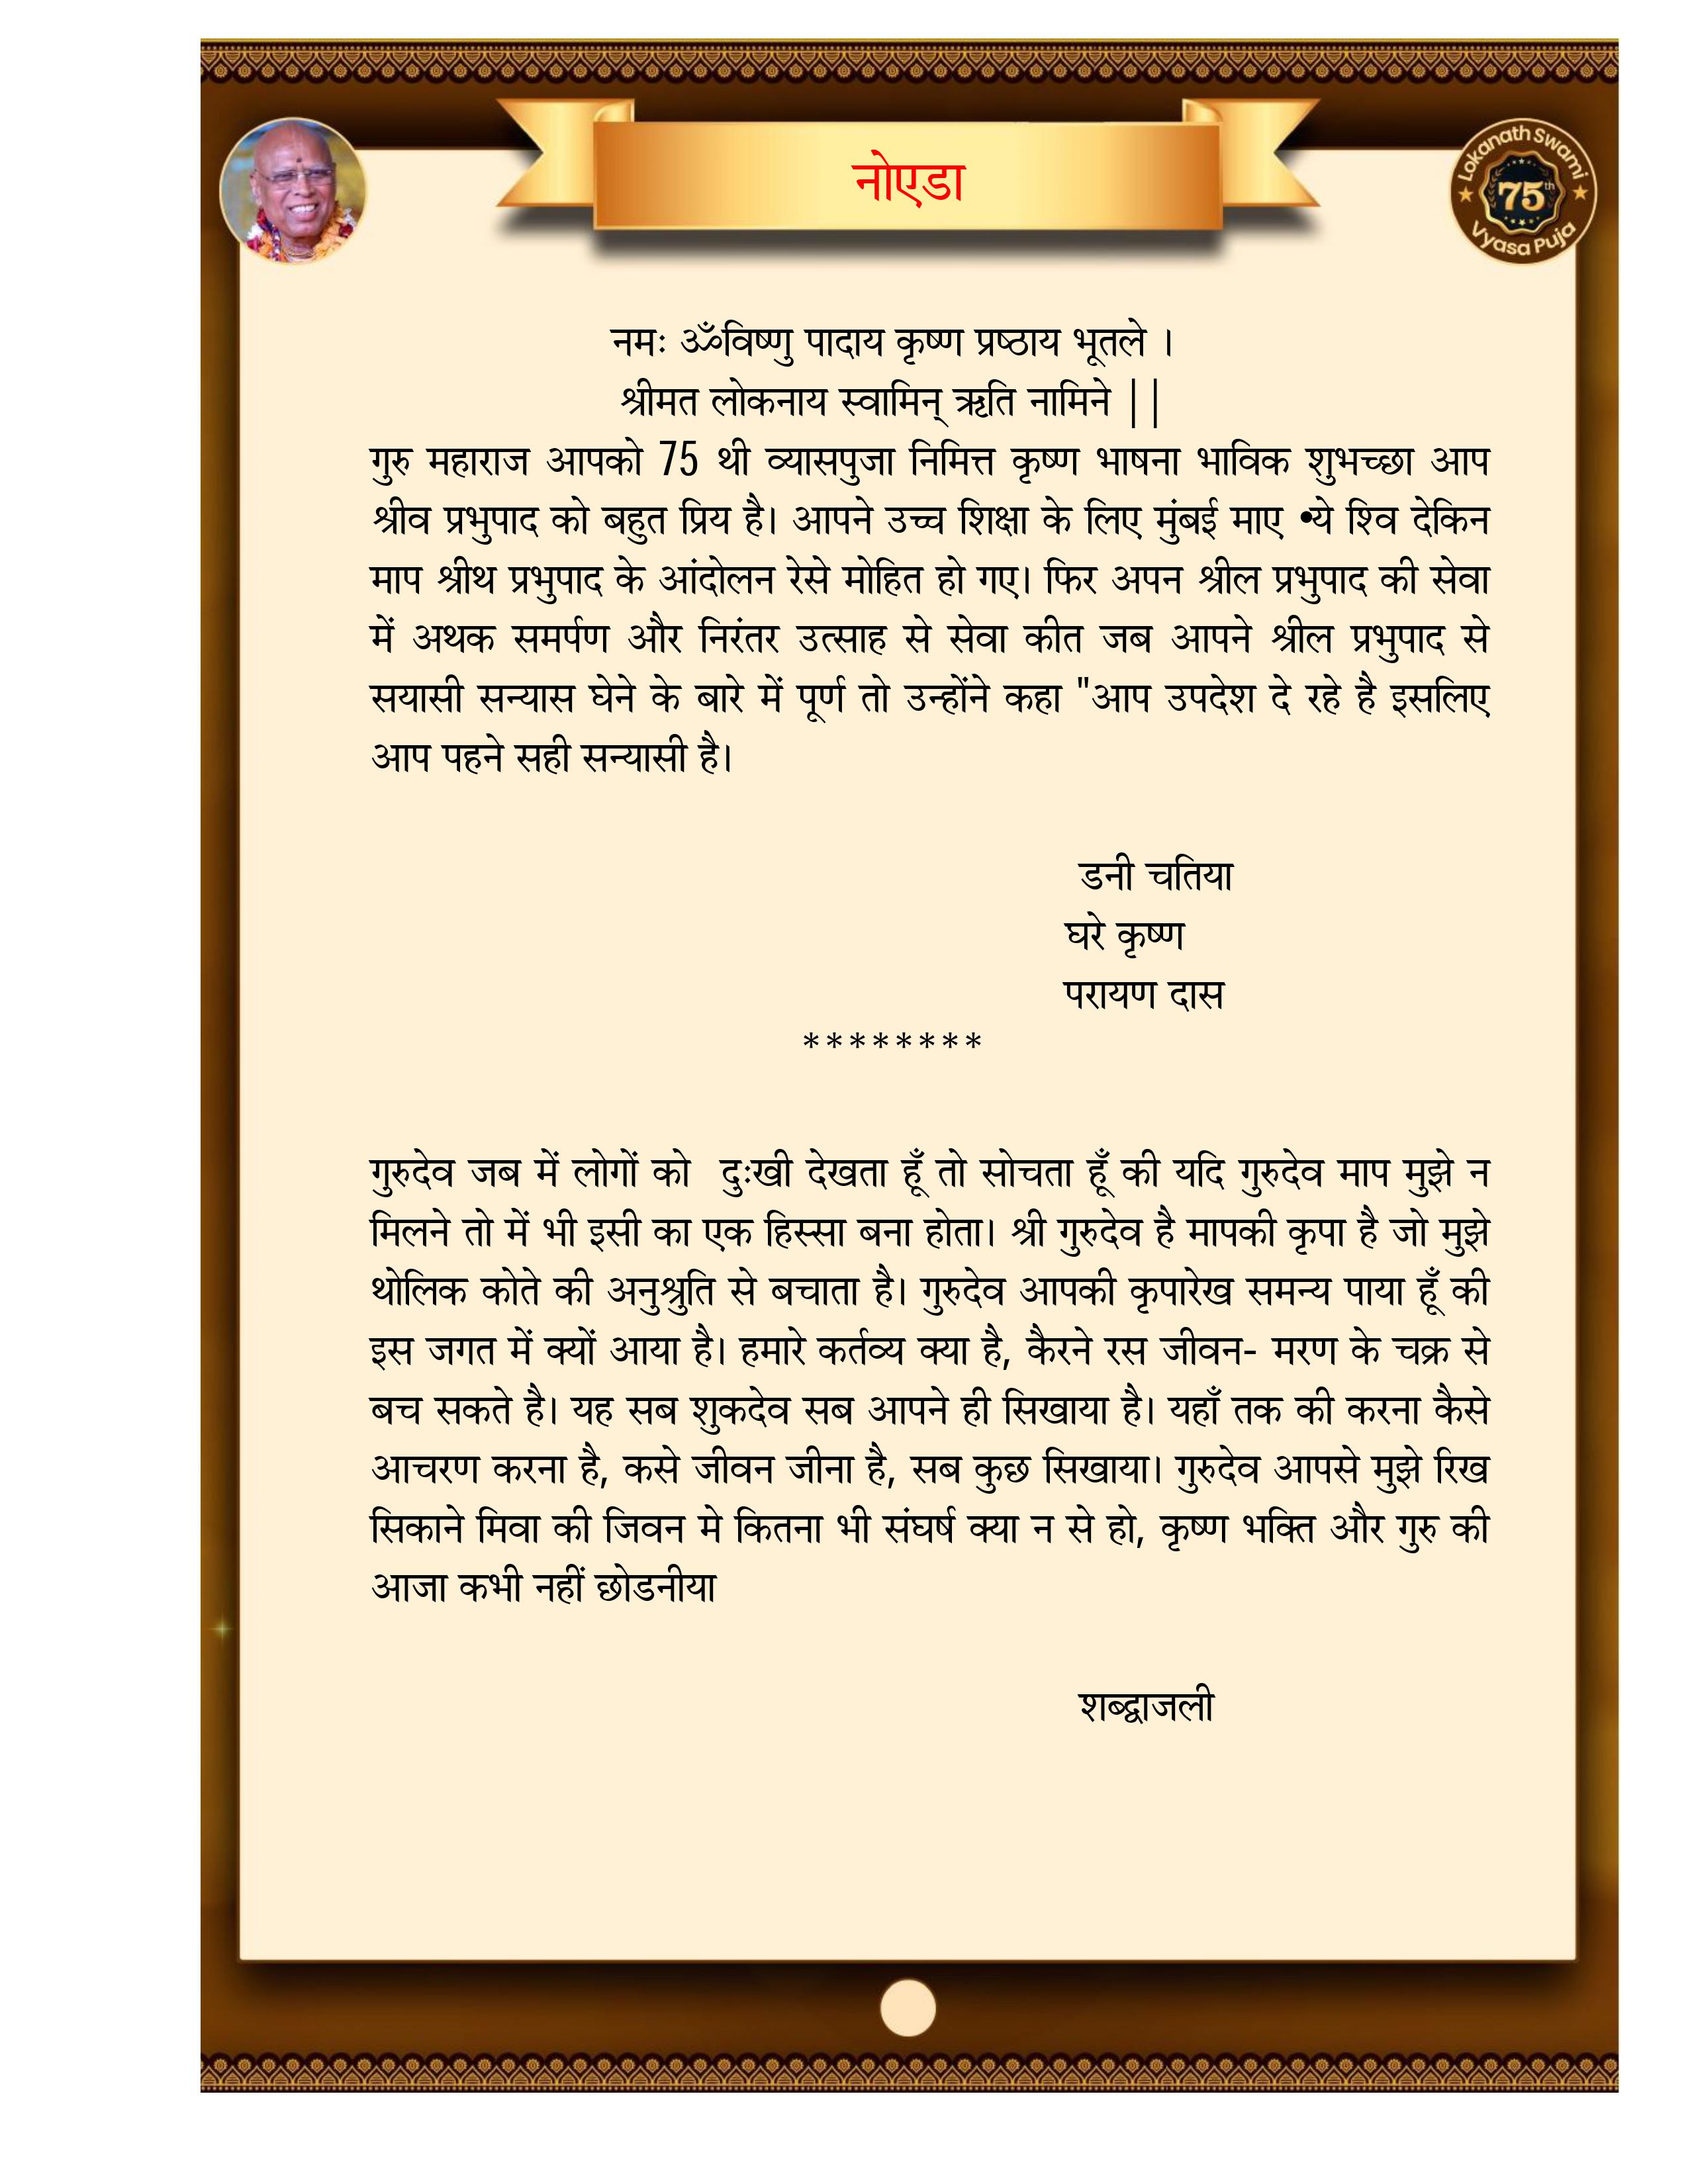 नोएडा
Lokanath Swami
75th
Vyasa Puja
नमः ॐविष्णु पादाय कृष्ण प्रष्ठाय भूतले ।
श्रीमत लोकनाय स्वामिन् ऋति नामिने ||
गुरु महाराज आपको 75 थी व्यासपुजा निमित्त कृष्ण भाषना भाविक शुभच्छा आप
श्रीव प्रभुपाद को बहुत प्रिय है। आपने उच्च शिक्षा के लिए मुंबई माए •ये श्वि देकिन
माप श्रीथ प्रभुपाद के आंदोलन रेसे मोहित हो गए। फिर अपन श्रील प्रभुपाद की सेवा
में अथक समर्पण और निरंतर उत्साह से सेवा कीत जब आपने श्रील प्रभुपाद से
सयासी सन्यास घेने के बारे में पूर्ण तो उन्होंने कहा "आप उपदेश दे रहे है इसलिए
आप पहने सही सन्यासी है।
डनी चतिया
घरे कृष्ण
परायण दास
********
गुरुदेव जब में लोगों को दुःखी देखता हूँ तो सोचता हूँ की यदि गुरुदेव माप मुझे न
मिलने तो में भी इसी का एक हिस्सा बना होता। श्री गुरुदेव है मापकी कृपा है जो मुझे
थोलिक कोते की अनुश्रुति से बचाता है। गुरुदेव आपकी कृपारेख समन्य पाया हूँ की
इस जगत में क्यों आया है। हमारे कर्तव्य क्या है, कैरने रस जीवन- मरण के चक्र से
बच सकते है। यह सब शुकदेव सब आपने ही सिखाया है। यहाँ तक की करना कैसे
आचरण करना है, कसे जीवन जीना है, सब कुछ सिखाया। गुरुदेव आपसे मुझे रिख
सिकाने मिवा की जिवन मे कितना भी संघर्ष क्या न से हो, कृष्ण भक्ति और गुरु की
आजा कभी नहीं छोडनीया
शब्द्वाजली